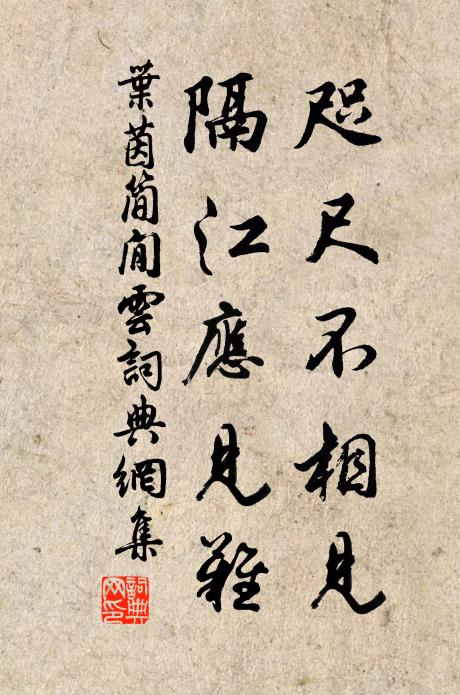 咫尺不相見
隔江應見難
葉茵簡閒雲詞典網集
詞典